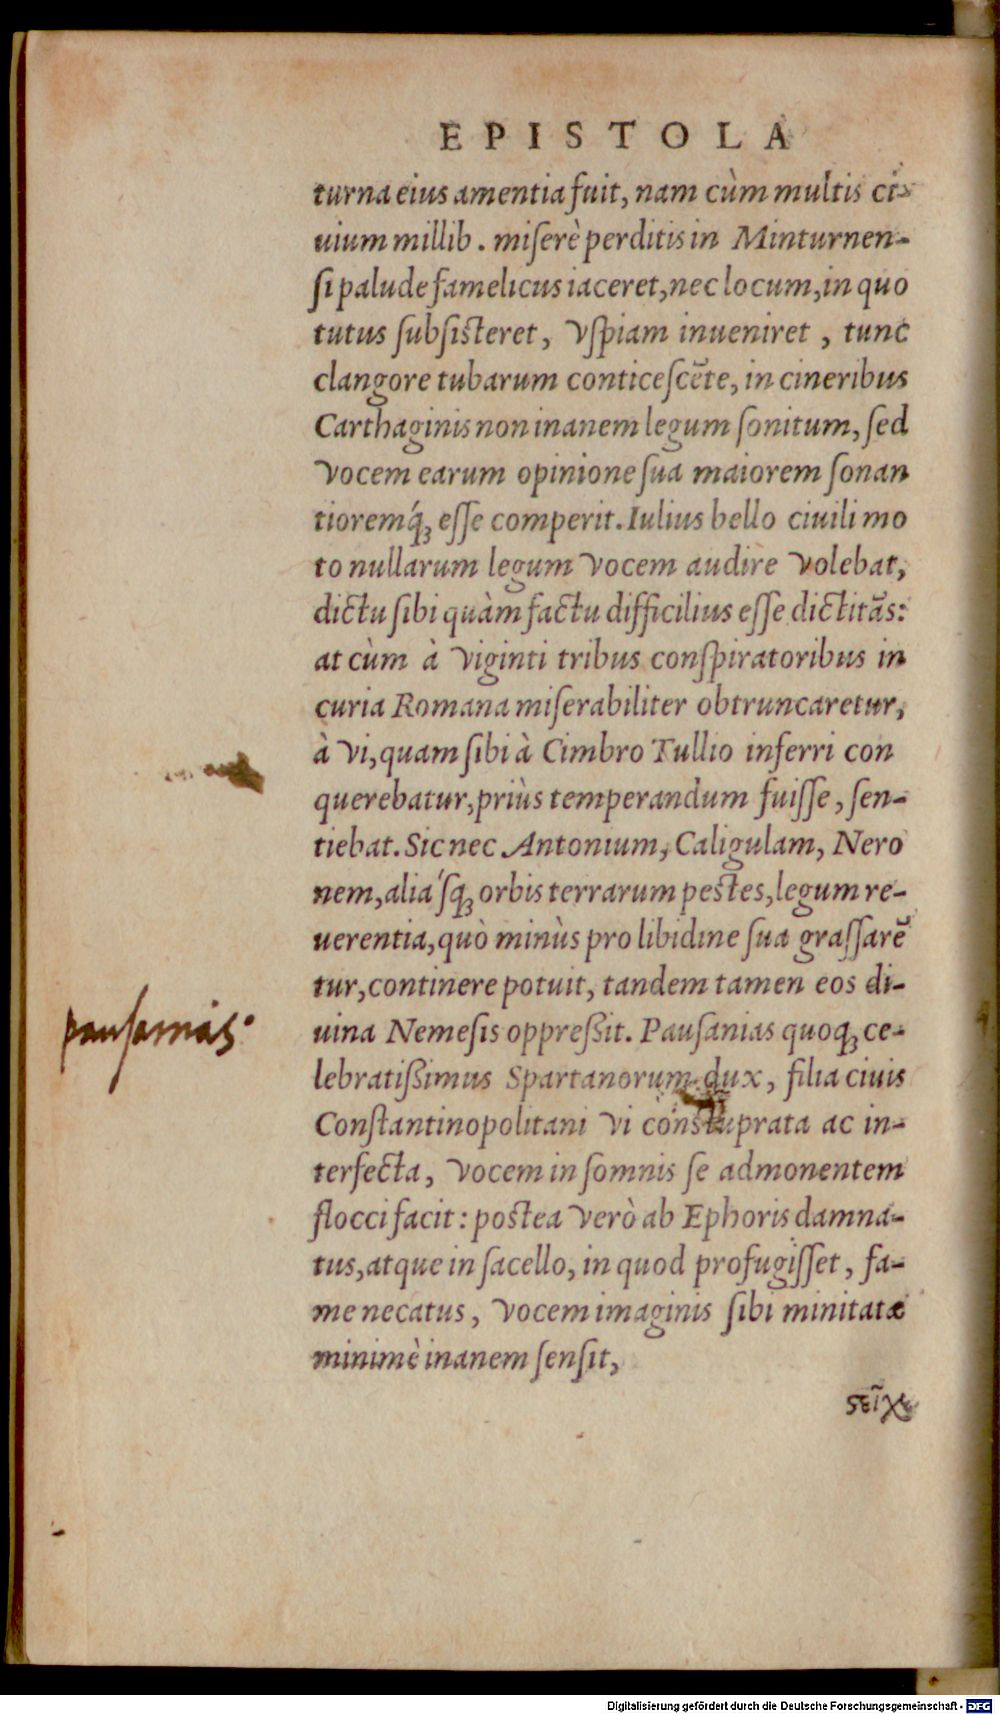 EPISTOLA
turna eius amentia fuit, nam cùm multis ci-
uium millib. miserè perditis in Minturnen-
si palude famelicus iaceret, nec locum, in quo
tutus subsisteret, vspiam inueniret, tunc
clangore tubarum conticescẽte, in cineribus
Carthaginis non inanem legum sonitum, sed
vocem earum opinione sua maiorem sonan
tioremq́ꝫ esse comperit. Iulius bello ciuili mo
to nullarum legum vocem audire volebat,
dictu sibi quàm factu difficilius esse dictitãs:
at cùm à viginti tribus conspiratoribus in
curia Romana miserabiliter obtruncaretur,
à vi, quam sibi à Cimbro Tullio inferri con
querebatur, priùs temperandum fuisse, sen-
tiebat. Sic nec Antonium, Caligulam, Nero
nem, aliásqꝫ orbis terrarum pestes, legum re-
uerentia, quò minùs pro libidine sua grassarẽ
tur, continere potuit, tandem tamen eos di-
pausanias.
uina Nemesis oppreßit. Pausanias quoqꝫ ce-
lebratißimus Spartanorum dux, filia ciuis
Constantinopolitani vi constuprata ac in-
terfecta, vocem in somnis se admonentem
flocci facit: postea verò ab Ephoris damna-
tus, atque in sacello, in quod profugisset, fa-
me necatus, vocem imaginis sibi minitatæ
minimè inanem sensit,
Digitalisierung gefördert durch die Deutsche Forschungsgemeinschaft - DFG